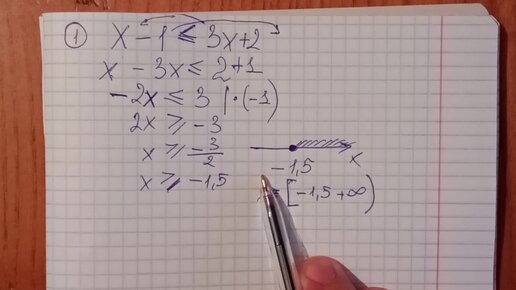 1 x - 1 ≤ 3x + 2
x - 3x ≤ 2 + 1
- 2x ≤ 3 | · (-1)
2x ≥ -3
x ≥ -3/2
x
x ≥ -1,5
-1,5
[-1,5 +∞)